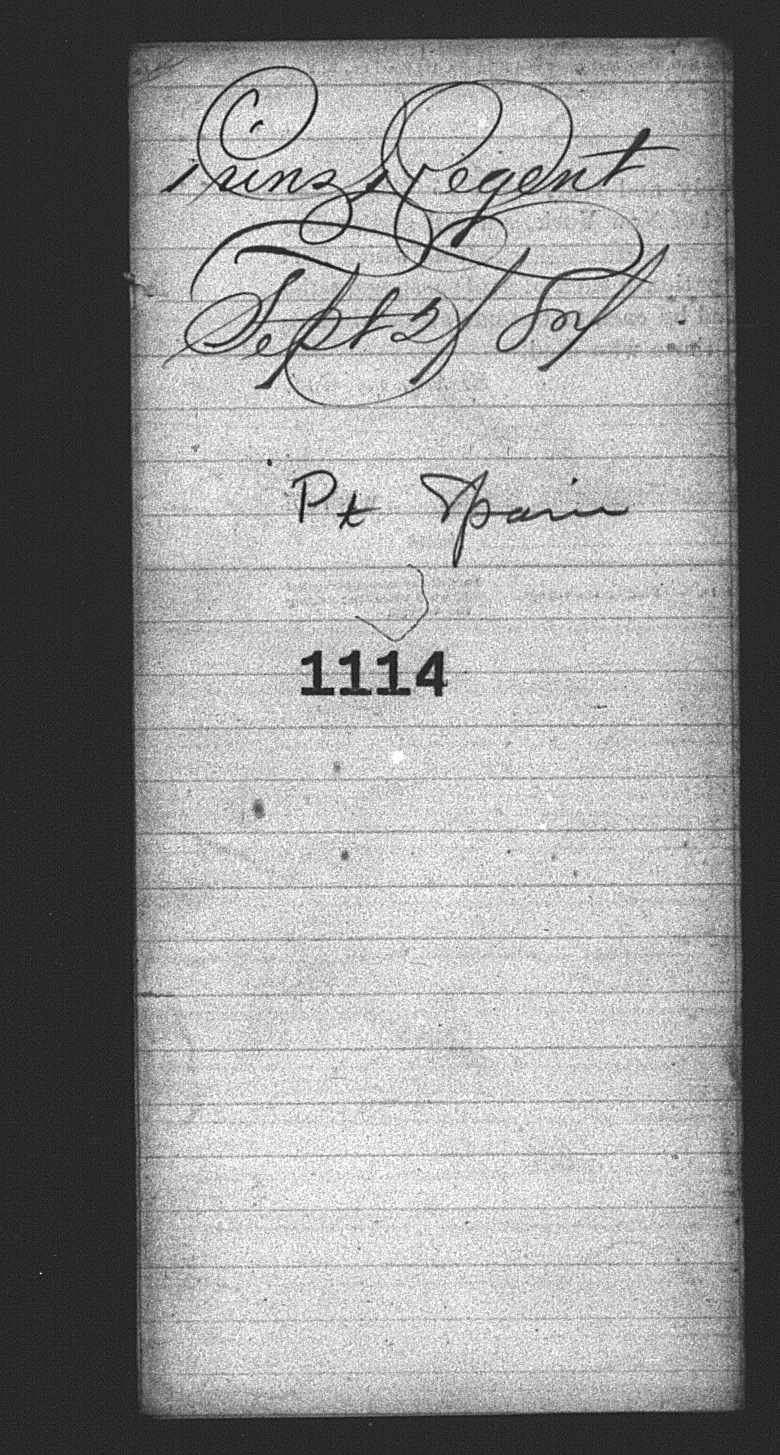 Prinz Regent
Sept 2/87
Pt Spain
1114